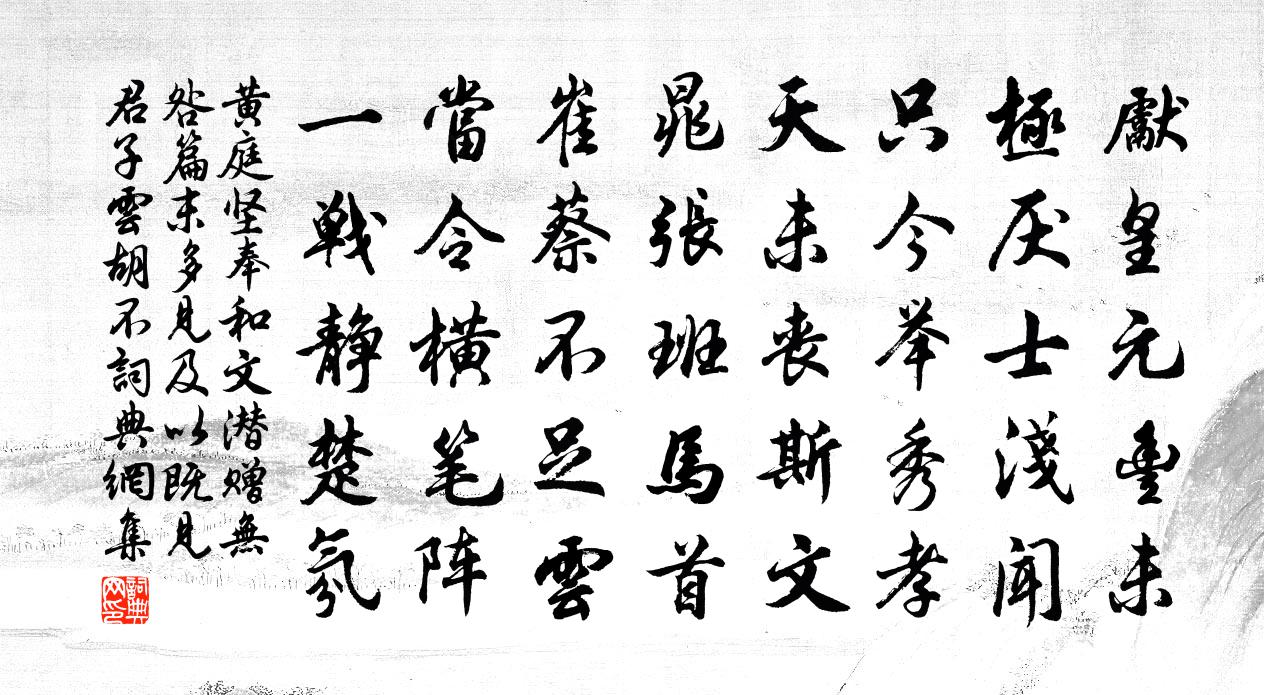 獻皇元豐末
極厌士淺聞
只今举秀孝
天未丧斯文
晁張班馬首
崔蔡不足雲
當令橫笔阵
一戦靜楚氛
黄庭坚奉和文潜赠無
咎篇末多見及以既見
君子雲胡不詞典網集
詞典
网印